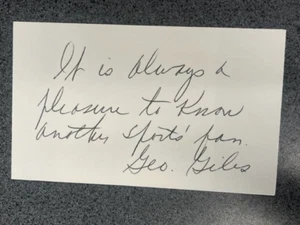 It is always a
pleasure to know
another sports' fan.
Geo. Giles